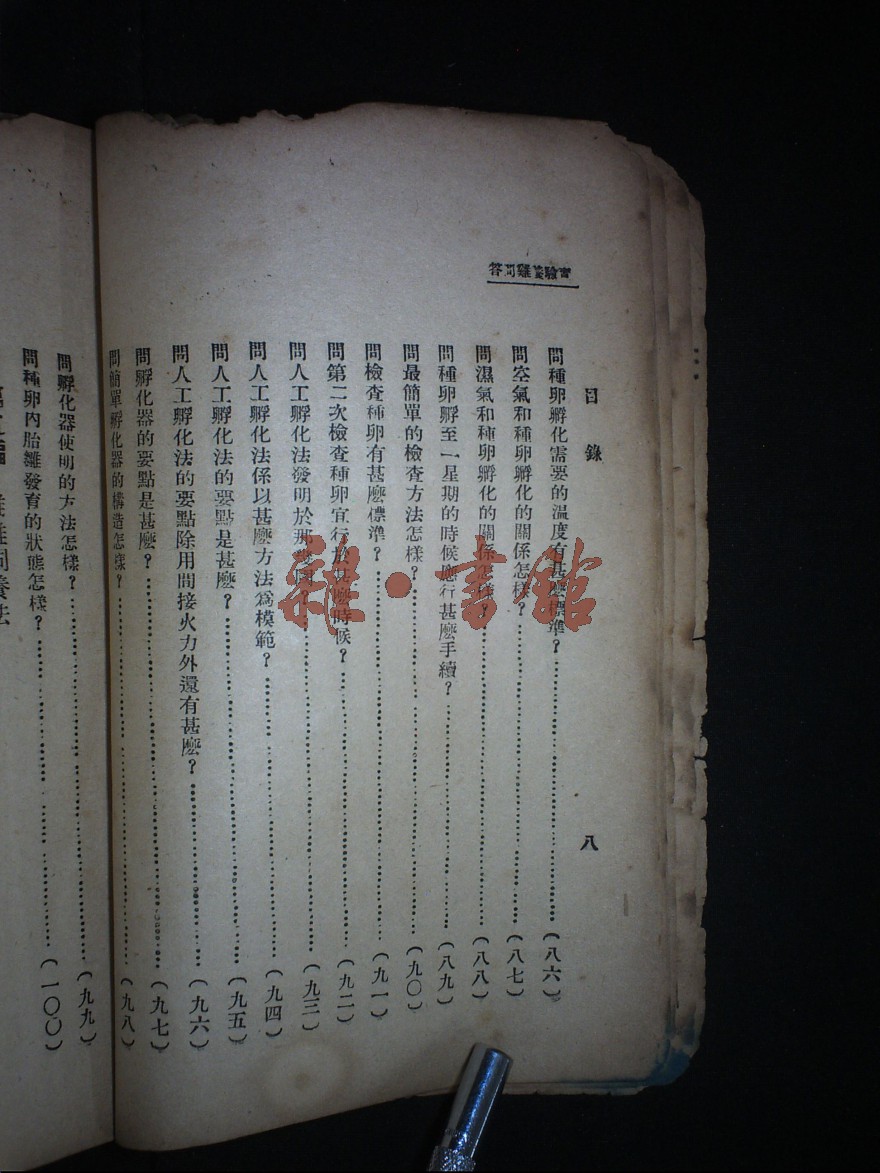 實驗養雞問答
目錄
八
問種卵孵化需要的溫度有甚麼標準？（八六）
問空氣和種卵孵化的關係怎樣？（八七）
問濕氣和種卵孵化的關係怎樣？（八八）
問種卵孵至一星期的時候應行甚麼手續？（八九）
問最簡單的檢查方法怎樣？（九〇）
問檢查種卵有甚麼標準？（九一）
問第二次檢查種卵宜行於甚麼時候？（九二）
問人工孵化法發明於那幾國？（九三）
問人工孵化法係以甚麼方法為模範？（九四）
問人工孵化法的要點是甚麼？（九五）
問人工孵化法的要點除用間接火力外還有甚麼？（九六）
問孵化器的要點是甚麼？（九七）
問簡單孵化器的構造怎樣？（九八）
問孵化器使明的方法怎樣？（九九）
問種卵內胎雛發育的狀態怎樣？（一〇〇）
飼養法
雜·書館